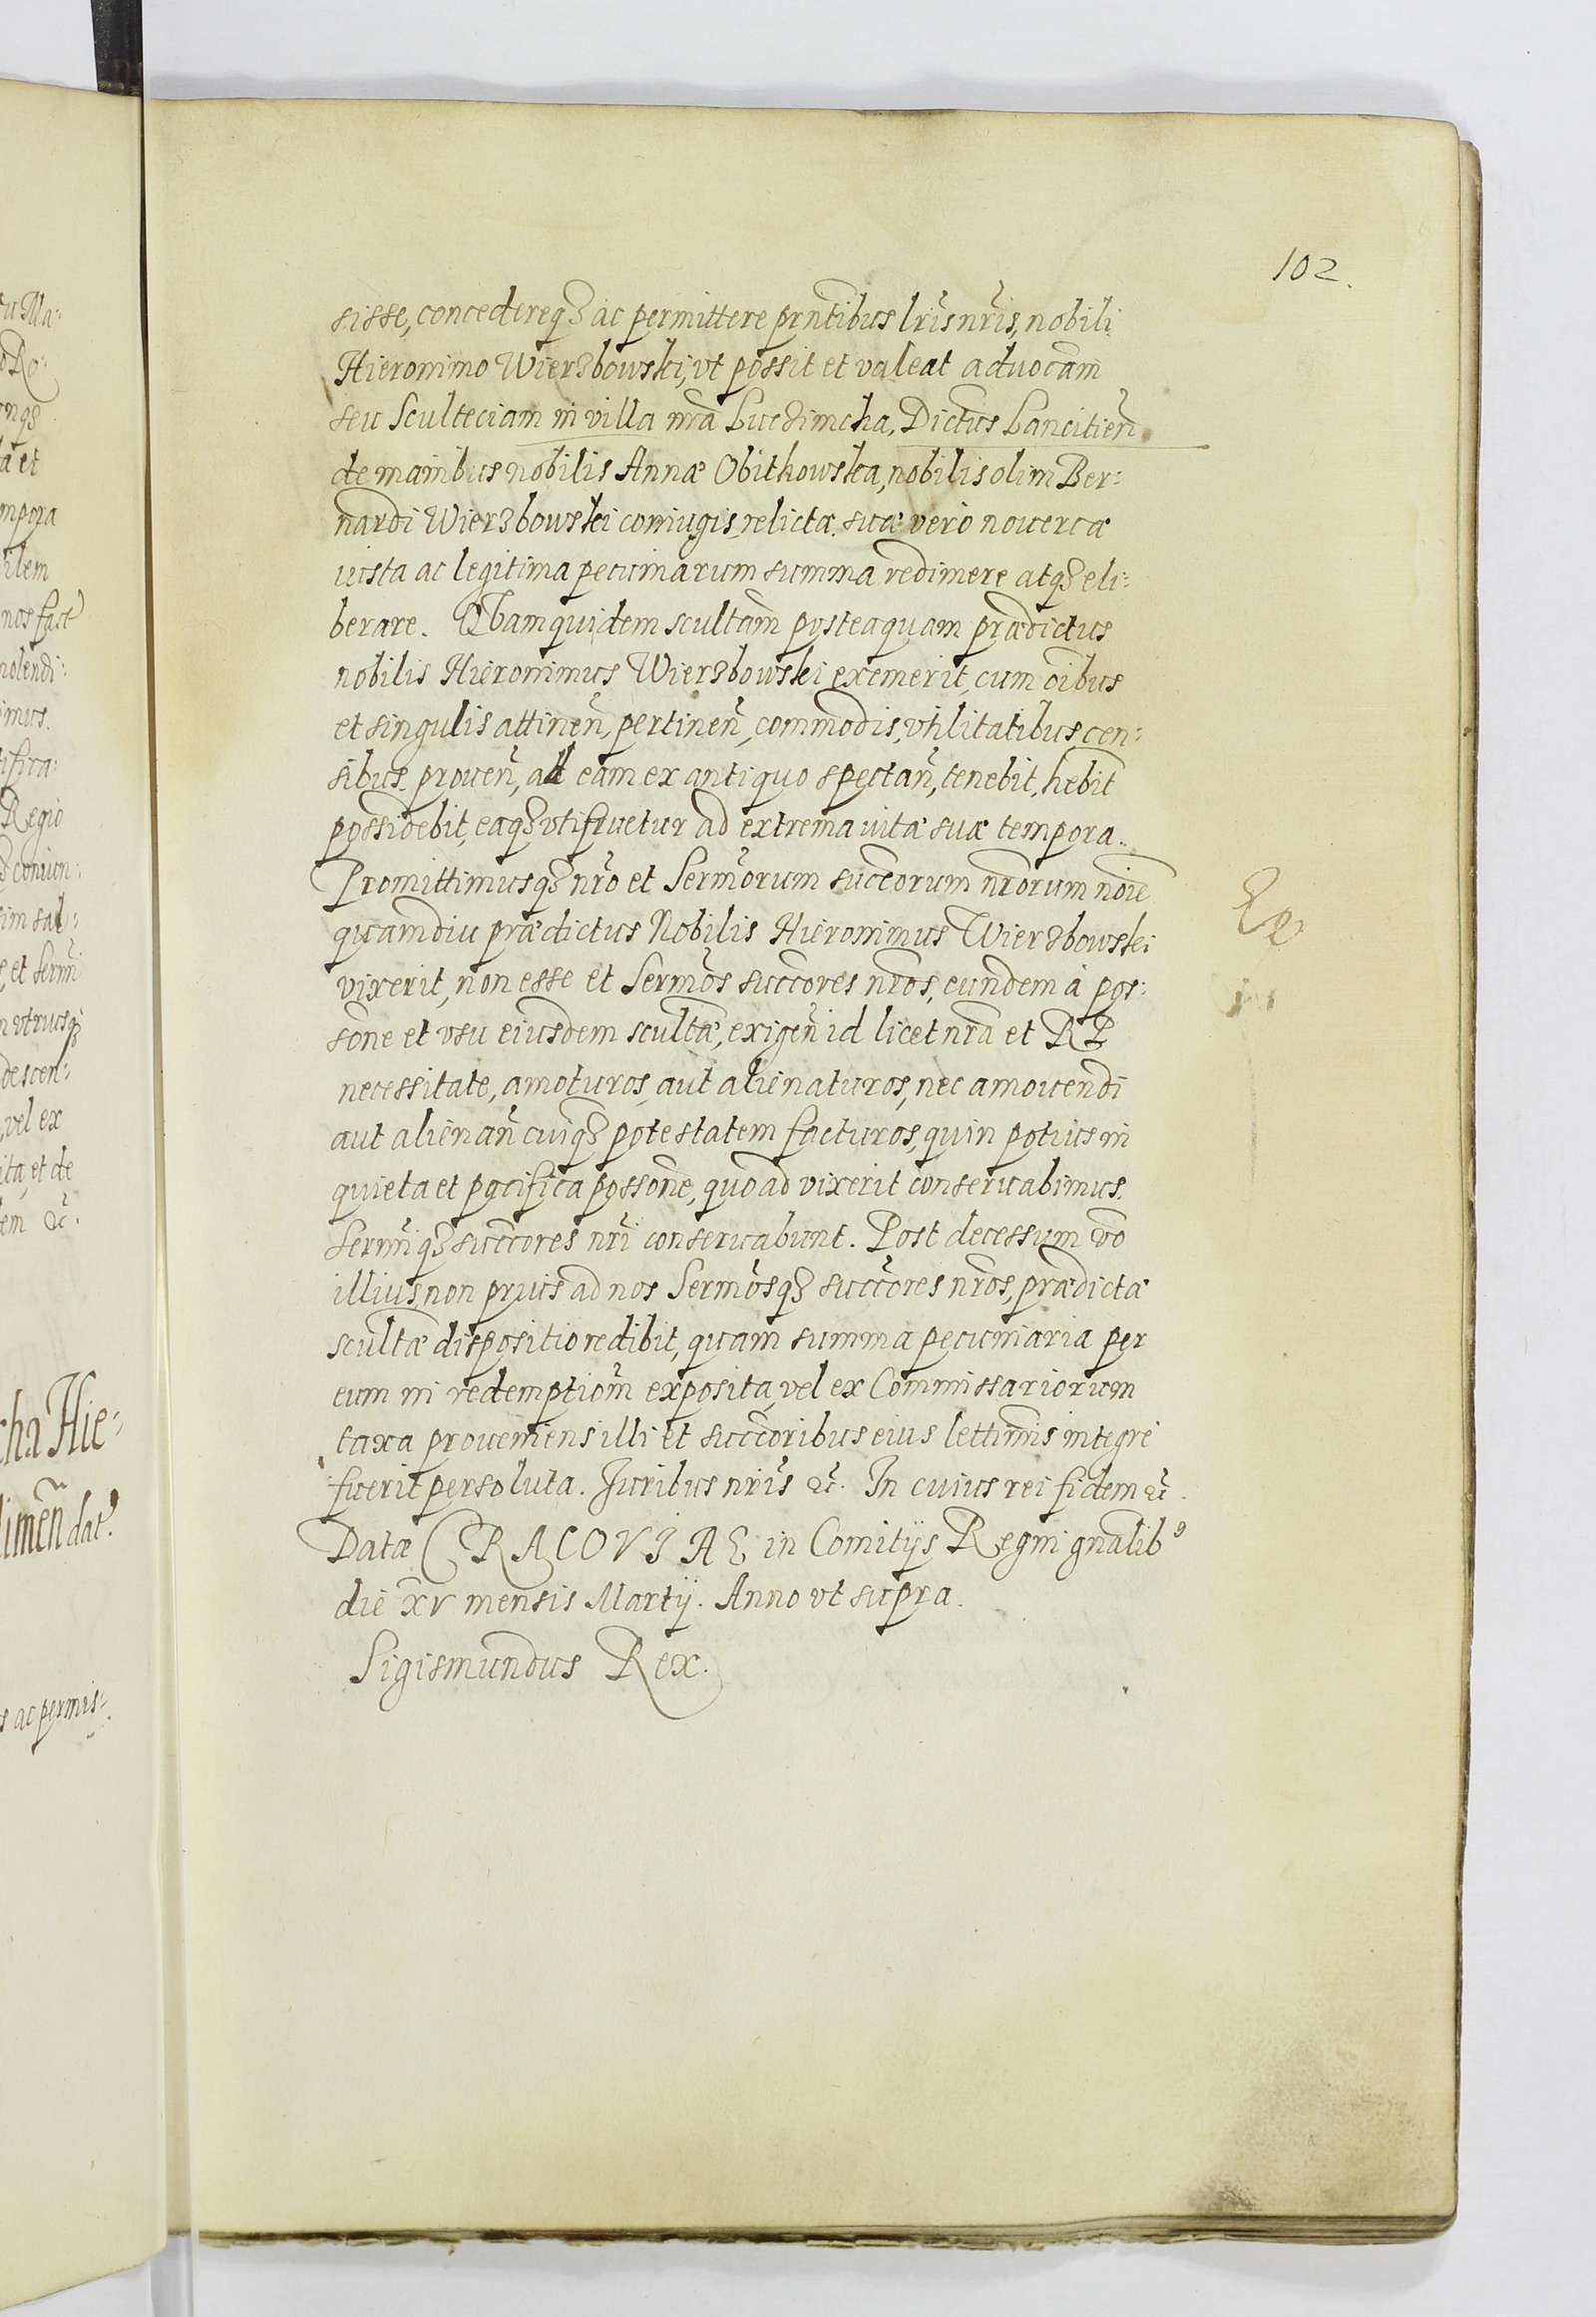 102.
sisse, concedereqꝫ ac permittere prn̄tibus lrĩs nrĩs, nobili
Hieronimo Wierzbowski, vt possit et valeat aduocām
seu Sculteciam in villa nr̄a Luczimcha, Dictus Lancitien̄
de manibus nobilis Annæ Obitkowska, nobilis olim Ber:
nardi Wierzbowski coniugis relictæ, suæ vero nouercæ
iusta ac legitima pecuniarum summa redimere atqꝫ eli:
berare. Quam quidem scultām posteaquam prædictus
nobilis Hieronimus Wierzbowski exemerit, cum oībus
et singulis attinen̄, pertinen̄, commodis, vtilitatibus, cen:
sibus, prouen̄, ad eam ex antiquo spectan̄, tenebit, hēbit
possidebit, eaqꝫ vtifruetur ad extrema vitæ suæ tempora.
Promittimusqꝫ nr̄o et Serm̄orum succēorum nr̄orum noīe
quamdiu prædictus Nobilis Hieronimus Wierzbowski
vixerit, non esse et Serm̄os succ̄ores nr̄os, eundem à pos:
sōne et vsu eiusdem scultǣ, exigen̄ id licet nr̄a et RP
necessitate, amoturos, aut alienaturos, nec amouendi
aut alienan̄ cuiqꝫ potestatem facturos, quin potius in
quieta et pacifica possōne, quoad vixerit conseruabimus,
Serm̄iqꝫ succ̄ores nr̄i conseruabunt. Post decessum vō
illius, non prius ad nos Serm̄osqꝫ succ̄ores nr̄os, prædictæ
scultǣ dispositio redibit, quam summa pecuniaria per
eum in redemptiōm exposita, vel ex Commissariorum
taxa proueniens illi et succ̄oribus eius lettimis integrè
fuerit persoluta. Juribus nrīs &c̄. In cuius rei fidem &c̄.
Datæ CRACOVIAE in Comitijs Regni gnālibꝰ
die xv mensis Martij. Anno vt supra.
Sigismundus Rex.